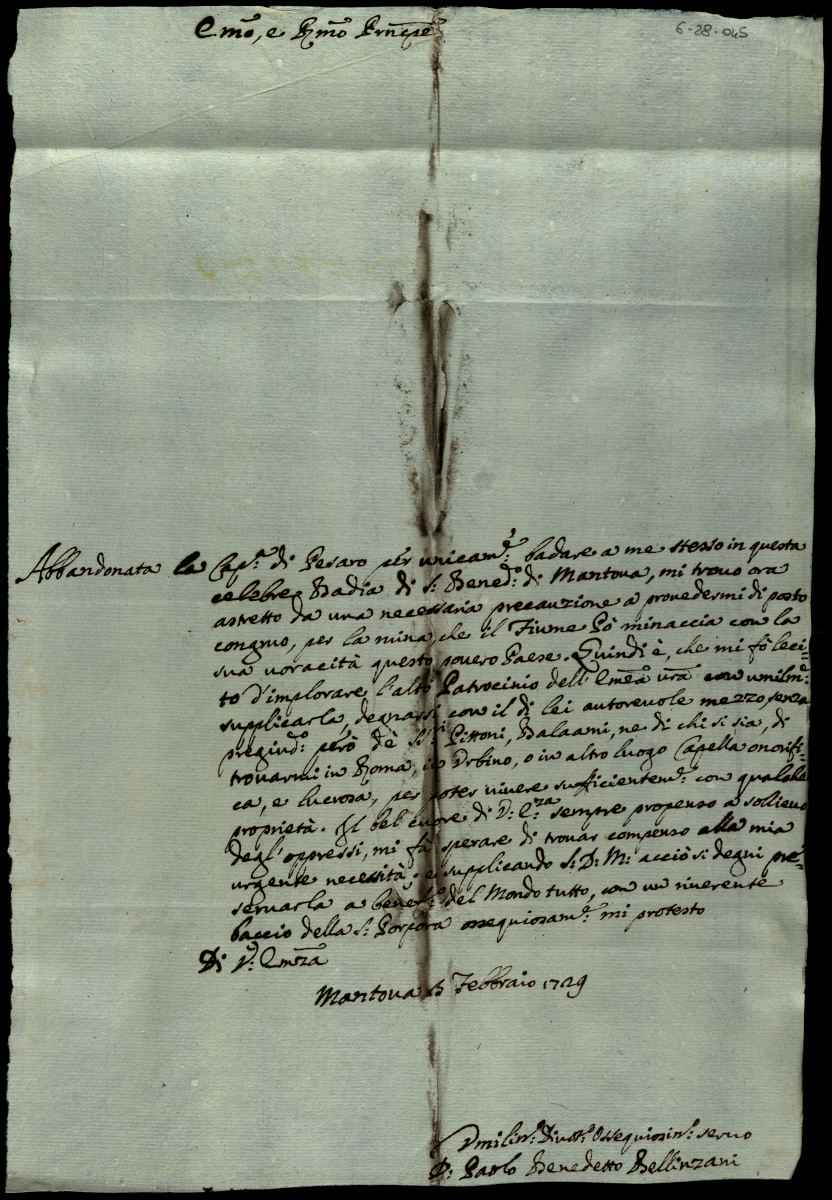 6-28-045
Emo, e Rmo Prnĉpe
Abbandonata la Capa. di Pesaro per unicame. badare a me stesso in questa
celebre Badia di S. Benedo. di Mantova, mi trovo ora
astretto da una necessaria precauzione a provedermi di posto
congruo, per la ruina, che il Fiume Pò minaccia con la
sua voracità questo povero Paese. Quindi è, che mi fò leci-
to d'implorare l'alto Patrocinio dell'Emza vra con umilme.
supplicarla, degnassi con il di lei autorevole mezzo, senza
pregiudo. però dè Sri: Pittoni, Balaami, ne di chi si sia, di
trovarmi in Roma, in Urbino, o in altro luogo Capella onorifi-
ca, e lucrosa, per poter vivere sufficienteme. con qualche
proprietà. Il bel cuore di V: Eza sempre propenso a sollievo
degl'oppressi, mi fà sperare di trovar compenso alla mia
urgente necessità; e supplicando S: D: M: acciò si degni pre-
servarla a benefo. del Mondo tutto, con un riverente
baccio della S: Porpora ossequiosame. mi protesto
Di V: Emza
Mantova Febbraio 1729
Umilimo: Divotmo: Ossequiosimo: servo
D: Paolo Benedetto Bellinzani